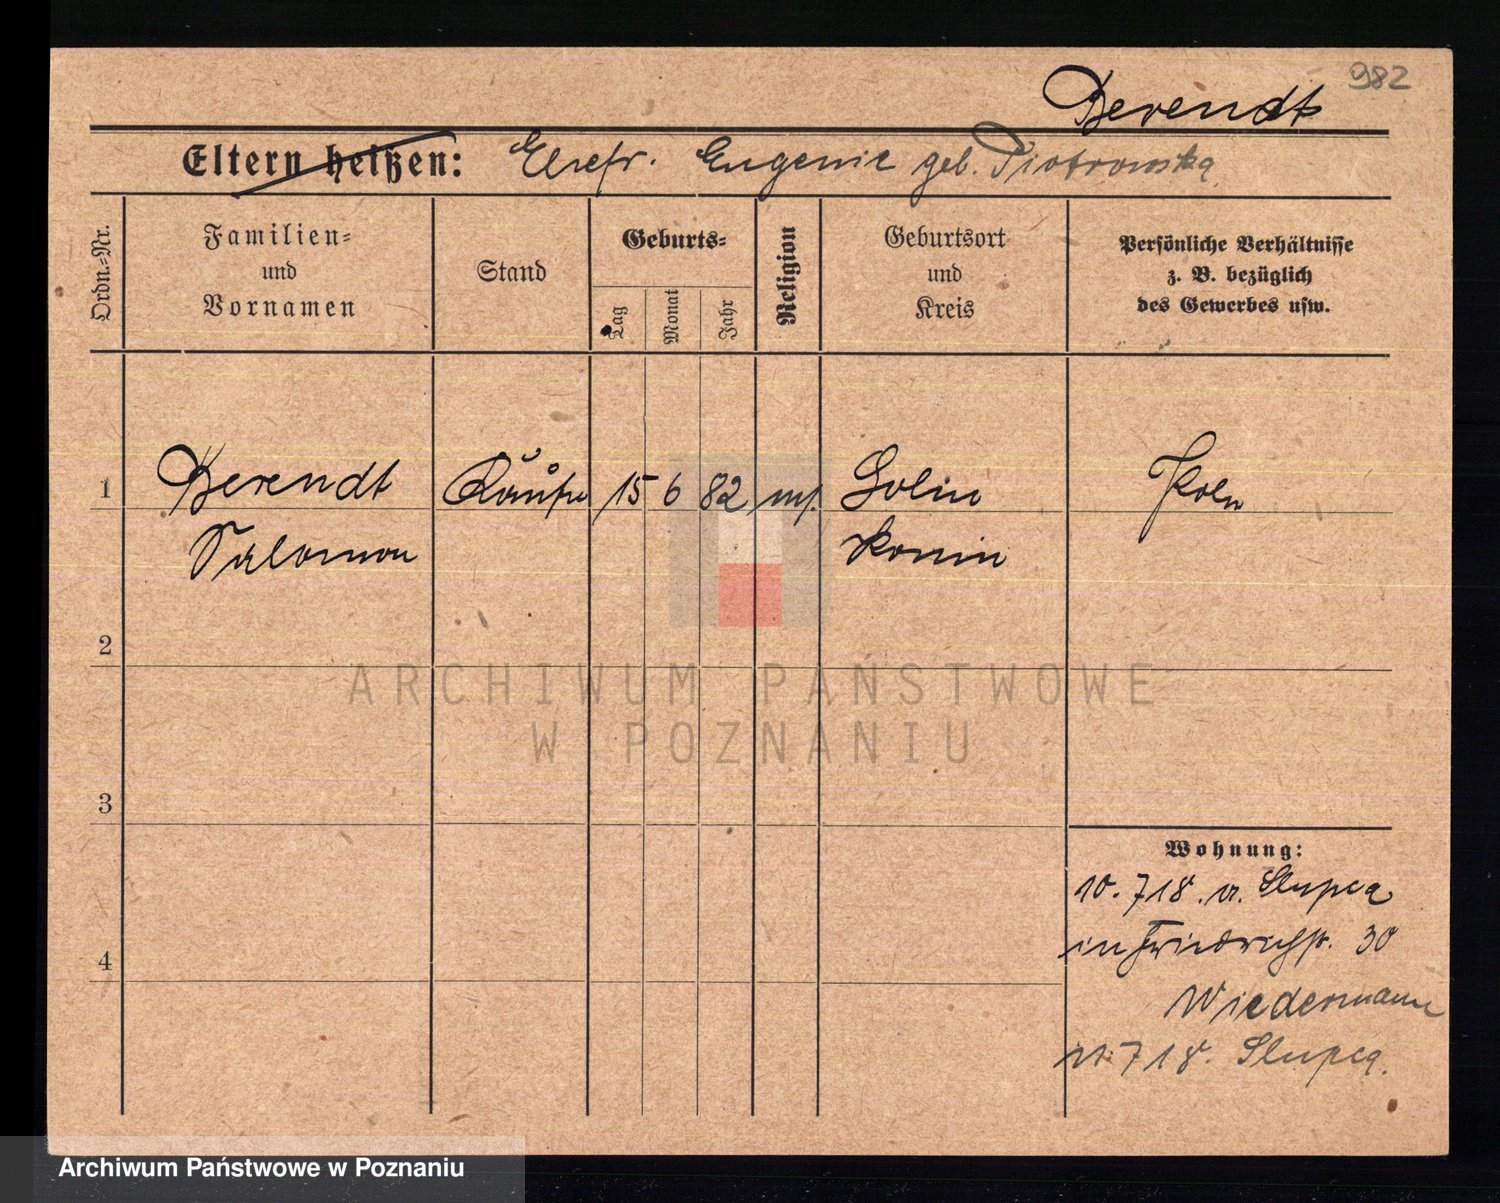 982
Berendt
Eltern heißen: Ehefr. Eugenie geb. Piotrowska
Ordn.=Nr.
Familien=
und
Vornamen
Stand
Geburts=
Tag
Monat
Jahr
Religion
Geburtsort
und
Kreis
Persönliche Verhältnisse
z. B. bezüglich
des Gewerbes usw.
1 Berendt 15 6 82 mos. Golin
Salomon Konin
2
ARCHIWUM PAŃSTWOWE
W POZNANIU
3
Wohnung:
10. 7 18. v. Slupca
in Friedrichstr. 30
4
Wiedermann
7 18. Slupca.
Archiwum Państwowe w Poznaniu